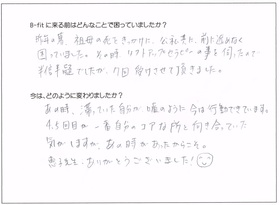 B-fit に来る前はどんなことで困っていましたか？
昨年の夏、祖母の死をきっかけに、公私共に、前に進めなく
困っていました。その時、リフトアップセラピーの事を伺ったので
半信半疑でしたが、7回受けさせて頂きました。
今は、どのように変わりましたか？
あの時、滞っていた自分が嘘のように今は行動できています。
4.5回目が一番自分のコアな所と向き合っていた
気がしますが、あの時があったからこそ。
恵子先生、ありがとうございました！